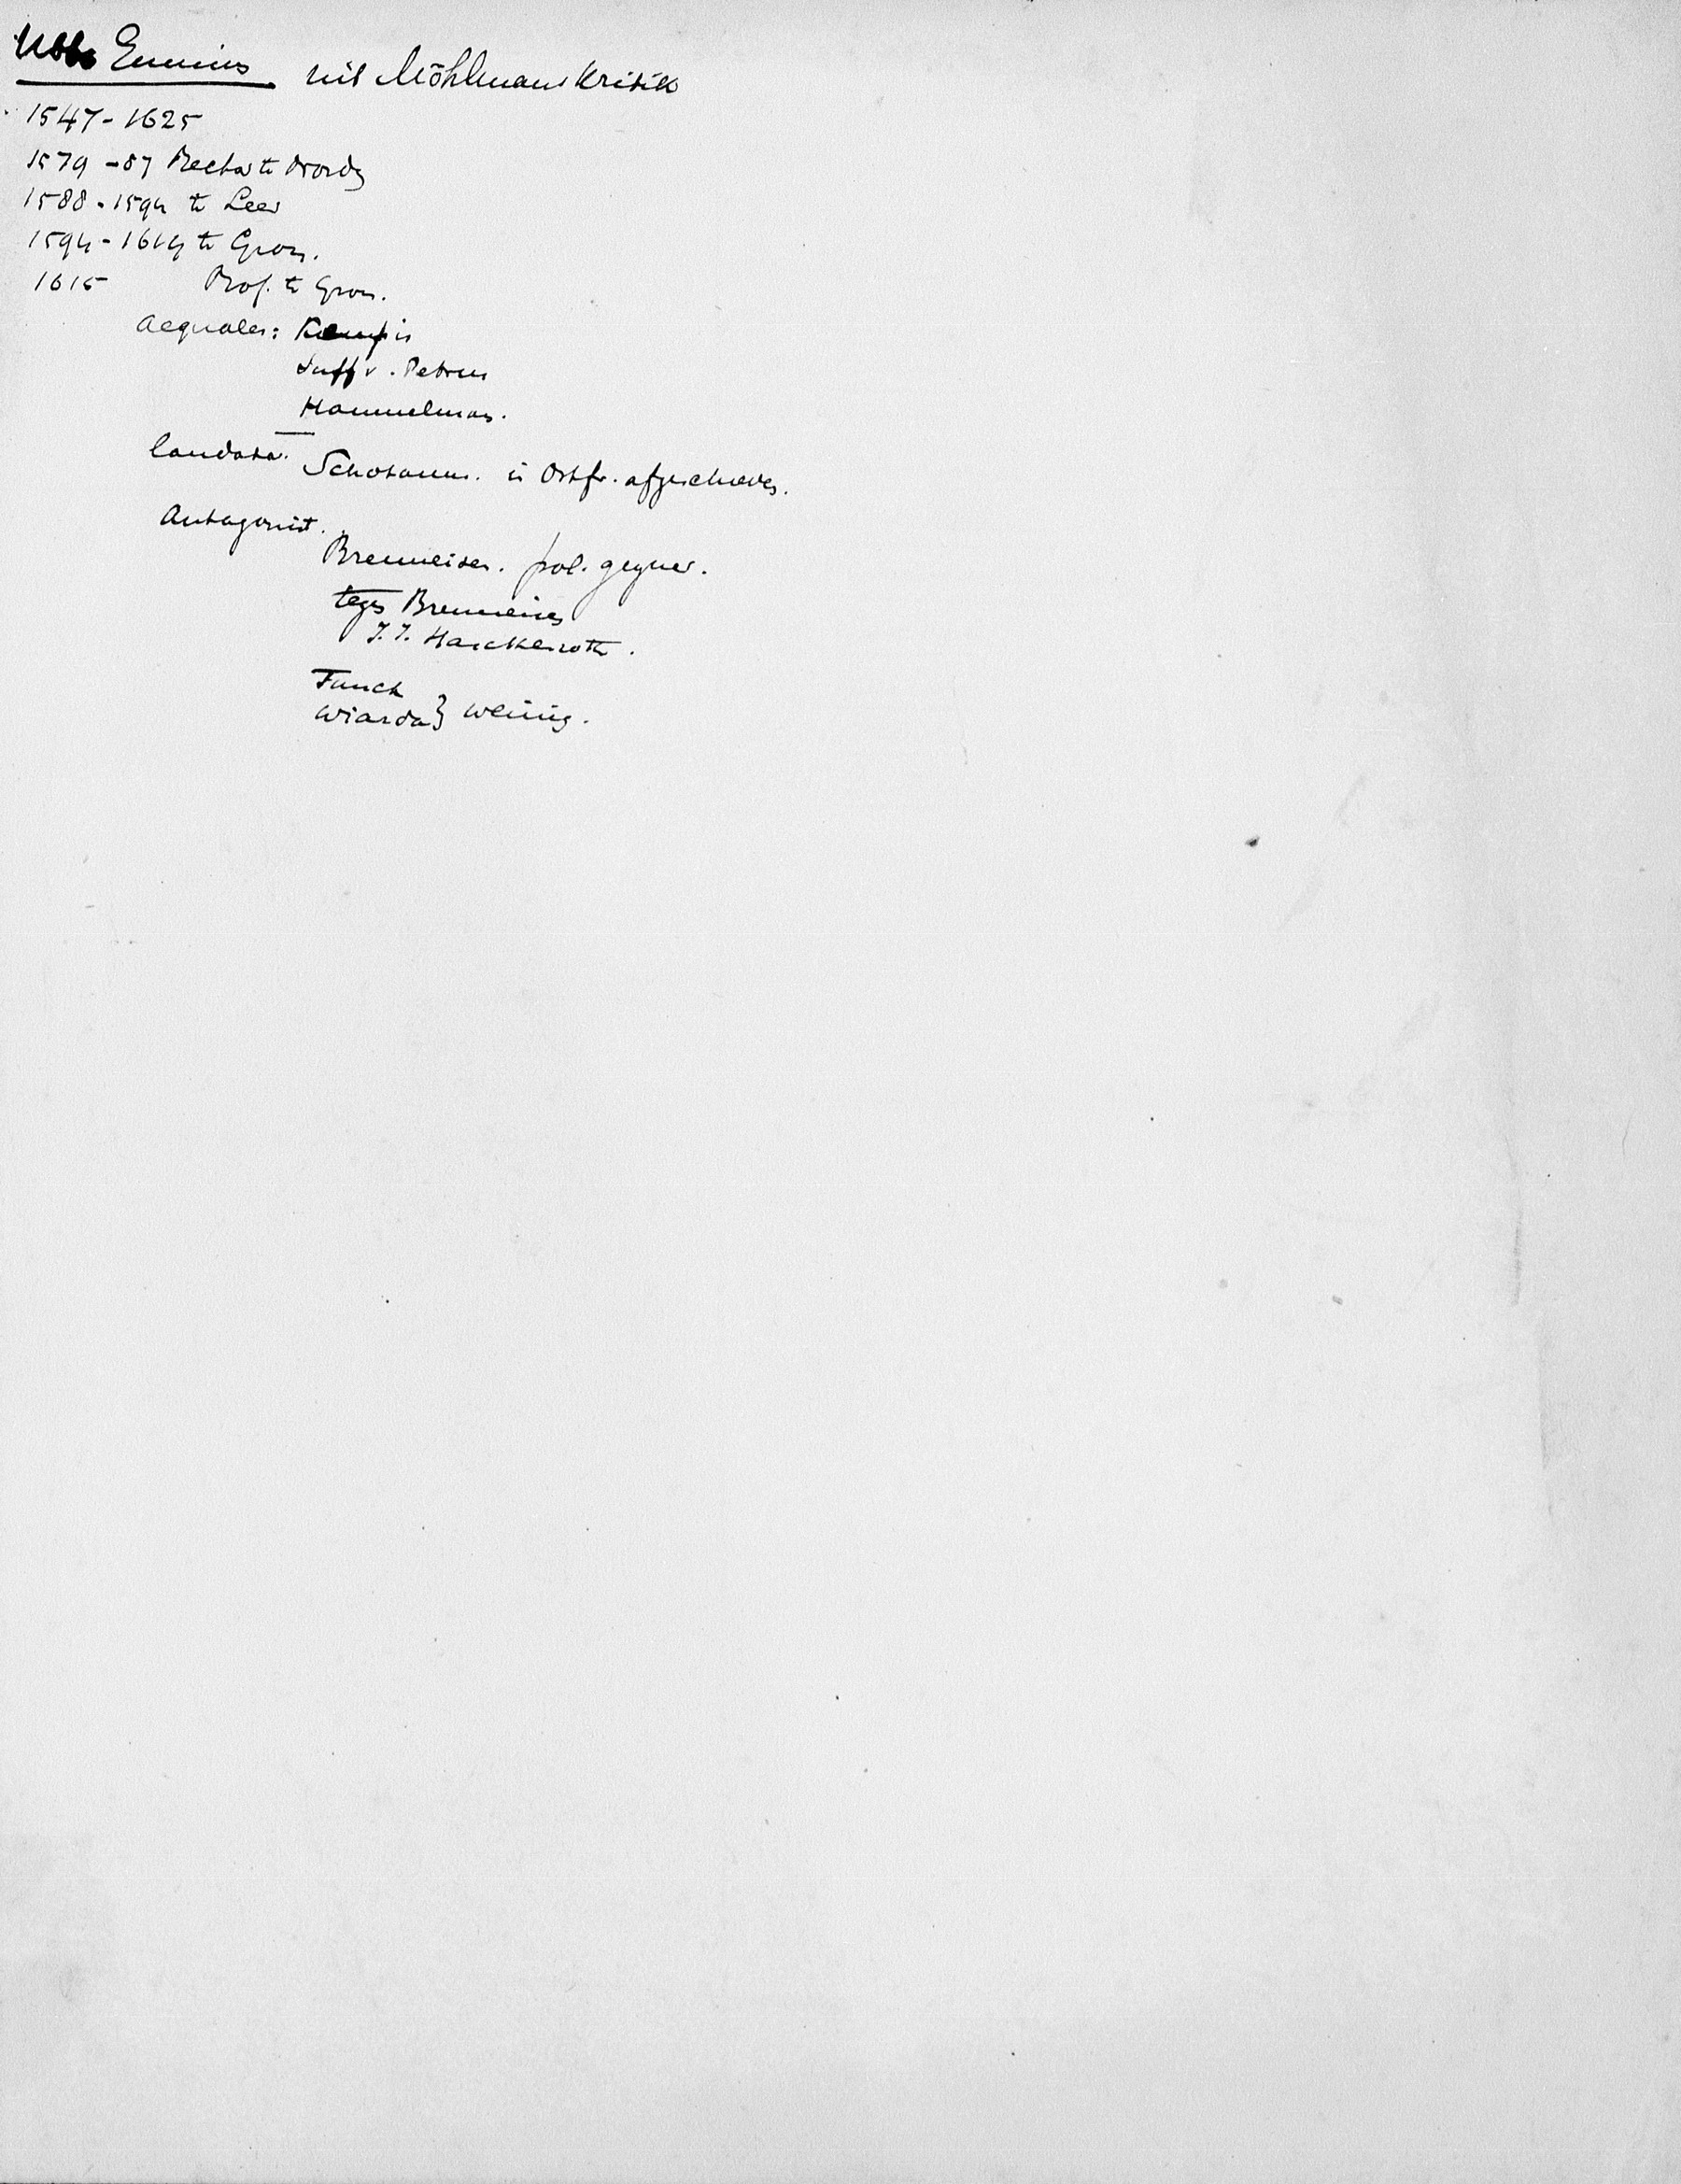 Ubbo Emmius uit Möhlmans Kritik
1547-1625
1579-87 Rector te Norden
1588-1594 te Leer
1594-1614 te Gron.
1615 Prof. te Gron.
Aequales: Kempis
Suffr. Petrus
Hammelman.
laudator. Schotanus. in Ostfr. afgeschreven.
Antagonist.
Brenneisen. pol. gegner.
tegen Brenneisen
J. J. Harckenroth.
Funck
Wiarda} weinig.